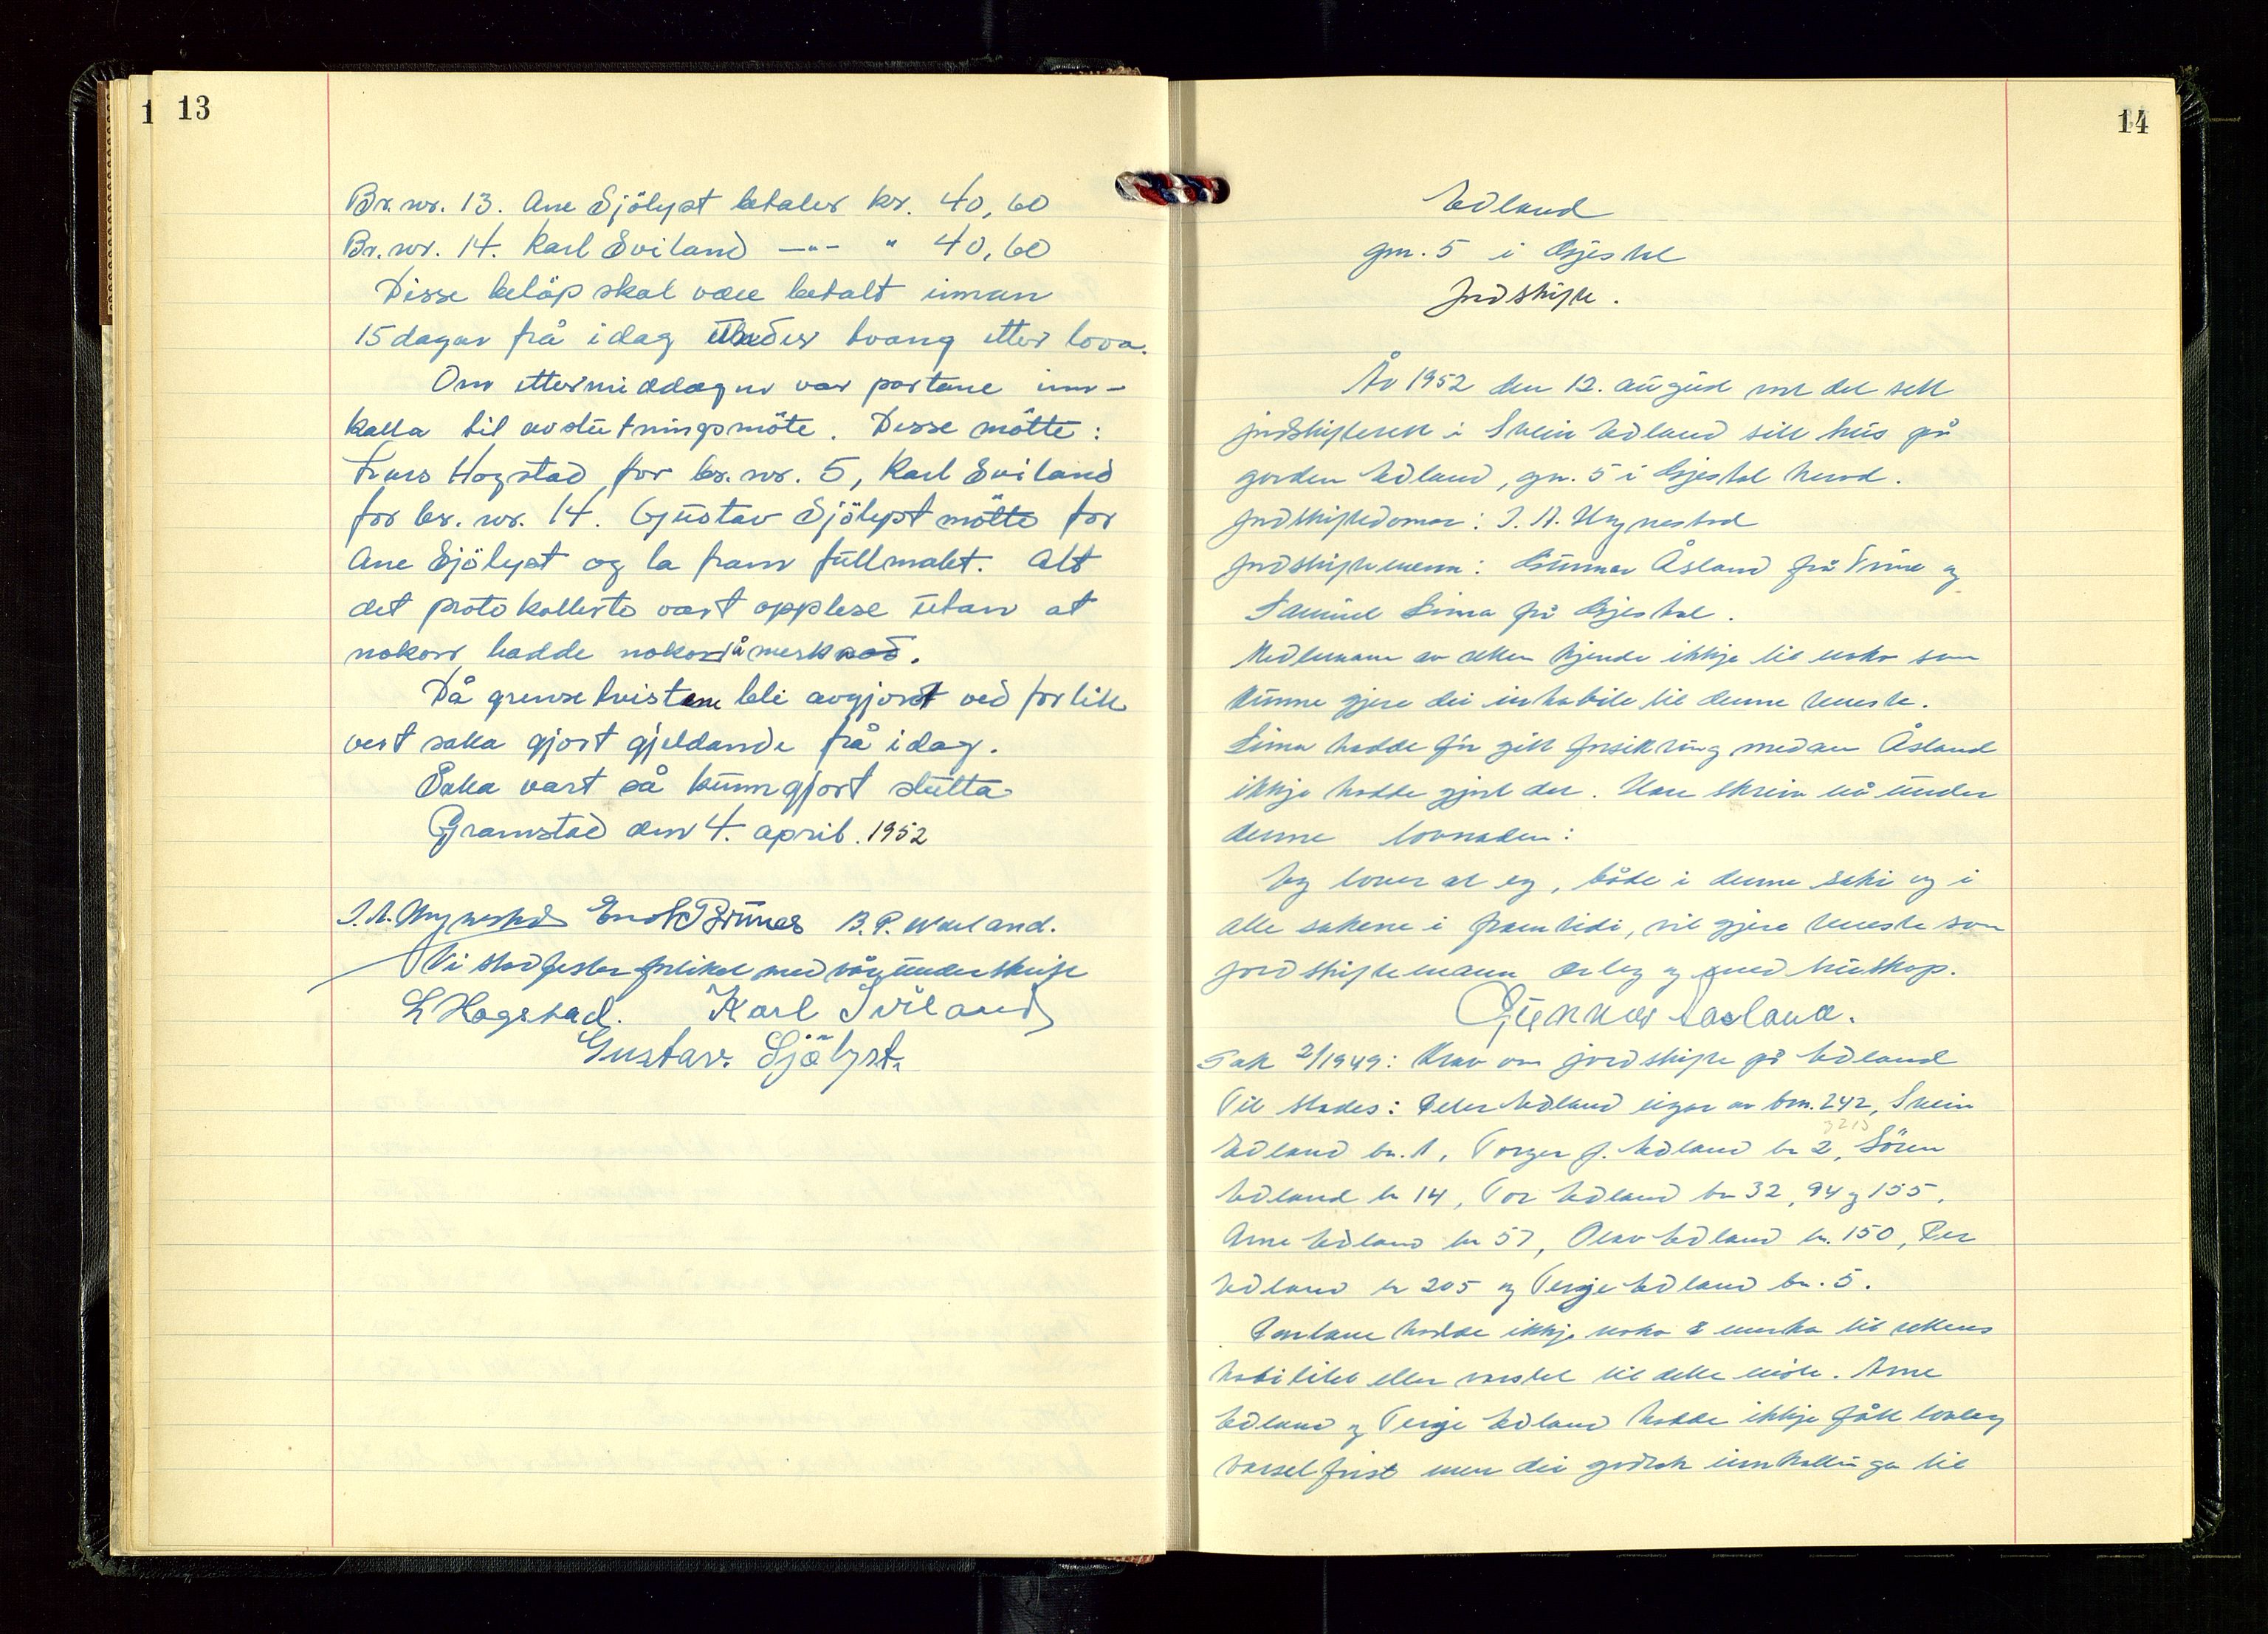 13
Br. nr. 13. Ane Sjölyst betaler kr. 40,60
Br. nr. 14. Karl Sviland —"— " 40,60
Disse beløp skal være betalt innan
15 dagar frå i dag under tvang etter lova.
Om ettermiddagen var partane inn-
kalla til avslutningsmöte. Desse mötte:
Lars Hogstad for br. nr. 5, Karl Sviland
for br. nr. 14. Gustav Sjölyst mötte for
Ane Sjölyst og la fram fullmakt. Alt
det protokollerte vart opplese utan at
nokon hadde noko å merka.
Då grensetvistene ble avgjort ved forlik
vert saka gjort gjeldande frå i dag.
Saka vart så kunngjort slutta
Gramstad den 4. april. 1952
J. A. Ugnestad B. P. Warland.
Vi stadfester forliket med vår underskrift
L Hogstad. Karl Sviland
Gustav. Sjölyst.
14
Edland
gnr. 5 i Gjestal
Jordskifte.
År 1952 den 12. august var det sett
jordskifterett i Svein Edland sitt hus på
garden Edland, gn. 5 i Gjestal herad.
Jordskiftedomar: J. A. Ugnestad
Jordskiftemenn: Gunnar Åsland frå Time og
Samuel Lima frå Gjestal.
Medlemane av retten kjende ikkje til noko som
kunne gjere dei inhabile til denne teneste.
Lima hadde før gitt forsikring medan Åsland
ikkje hadde gjort det. Han skreiv nå under
denne lovnaden:
Eg lovar at eg, både i denne saki og i
alle sakene i framtidi, vil gjera teneste som
jordskiftemann ærleg og med truskap.
Gunnar Aasland.
Sak 2/1949: Krav om jordskifte på Edland
Til stades: Peder Edland eigar av bnr. 242, Svein
Edland bn. 1, Torger J. Edland bn 2, Sören
Edland bn 14, Tor Edland bn 32, 94 og 155,
Arne Edland bn 57, Olav Edland bn. 150, Per
Edland bn 205 og Terje Edland bn. 5.
Partane hadde ikkje noko å merka til rettens
habilitet eller varslet til dette möte. Arne
Edland og Terje Edland hadde ikkje fått lovleg
varselfrist men dei godtok innkallinga til